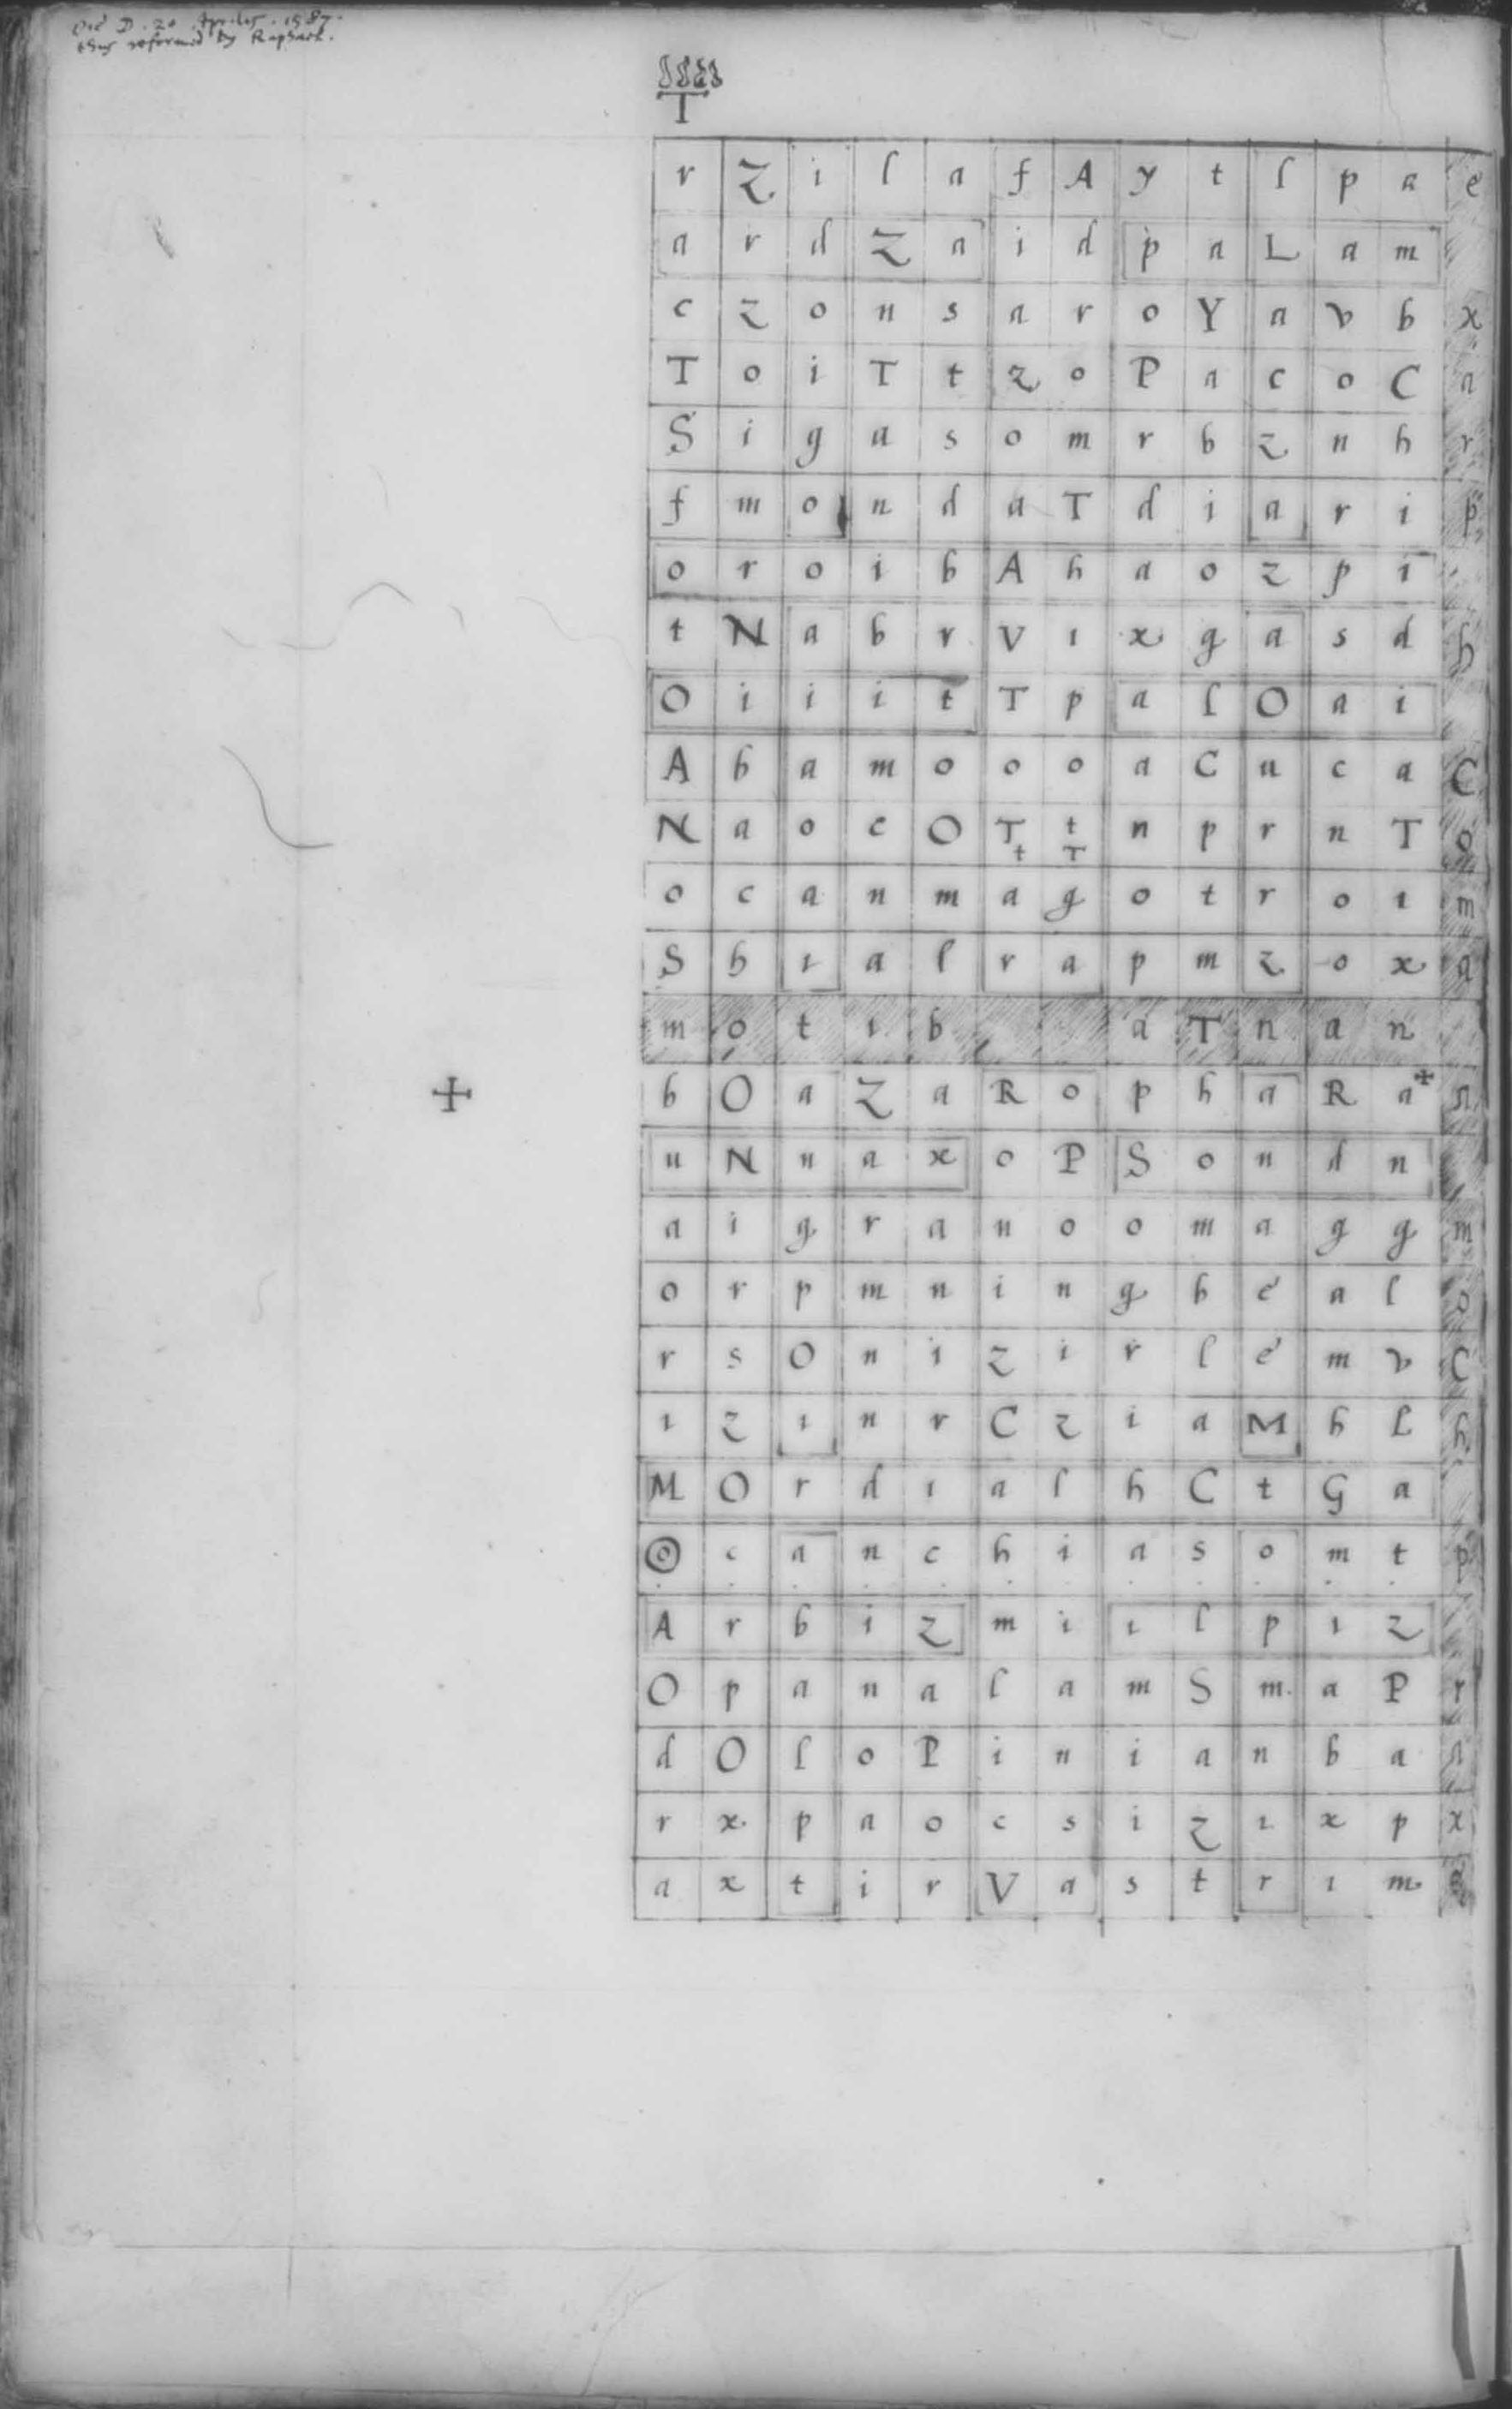 Die D. 20. Aprilis. 1587.
thus reformed by Raphael.
T
r Z i l a f A y t l p a e
a r d Z a i d p a L a m
c z o n s a r o Y a v b x
T o i T t z o P a c o C a
S i g a s o m r b z n h r
f m o n d a T d i a r i p
o r o i b A h a o z p i
t N a b r V i x g a s d h
O i i i t T p a l O a i
A b a m o o o a C u c a C
N a o c O T t n p r n T o
t T
o c a n m a g o t r o i m
S h i a l r a p m z o x a
m o t i b a T n a n
+ b O a Z a R o p h a R a + n
u N n a x o P S o n d n
a i g r a n o o m a g g m
o r p m n i n g b e a l o
r s O n i z i r l e m v C
i z i n r C z i a M h L h
M O r d i a l h C t G a
O c a n c h i a s o m t p
A r b i z m i i l p i z
O p a n a l a m S m a P r
d O l o P i n i a n b a a
r x p a o c s i z i x p x
a x t i r V a s t r i m e